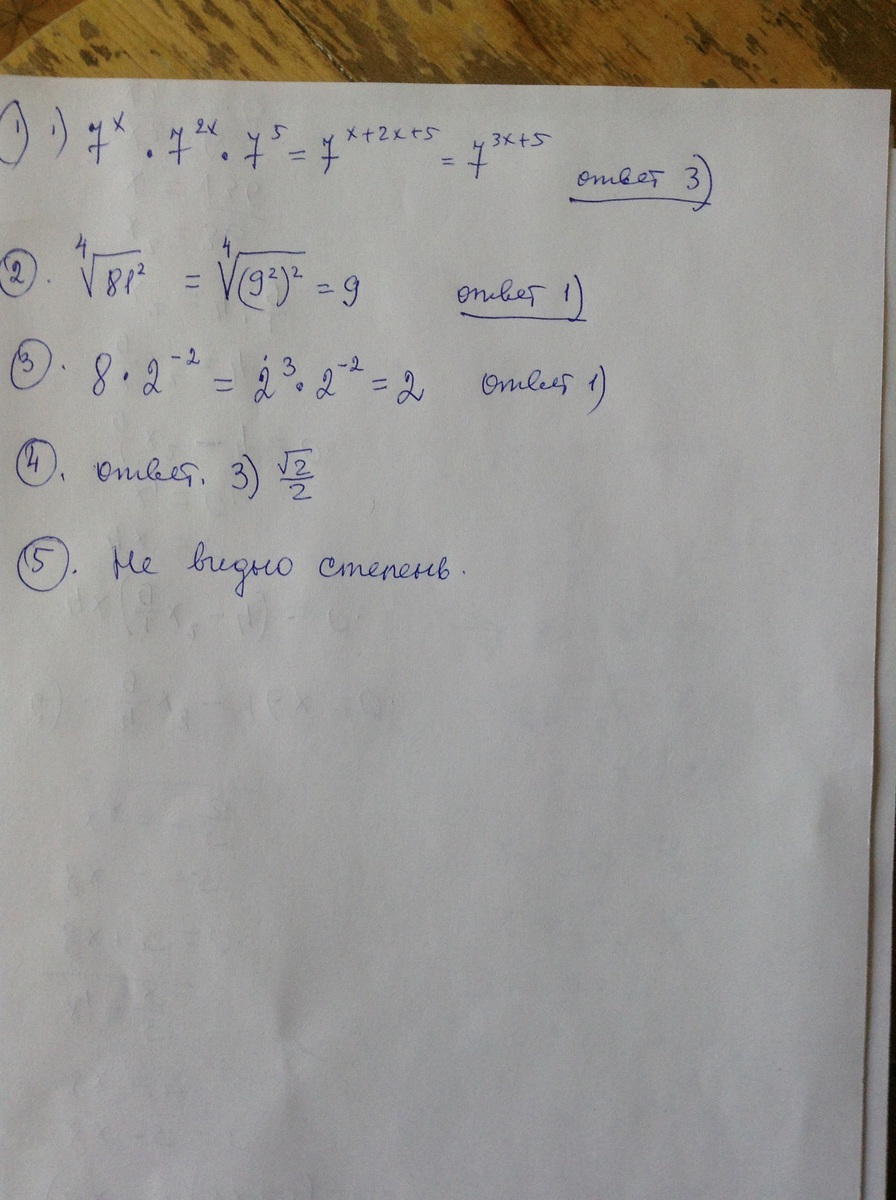 1) 1) 7^x · 7^{2x} · 7^5 = 7^{x+2x+5} = 7^{3x+5} ответ 3)
2. ∜(81²) = ∜((9²)²) = 9 ответ 1)
3. 8 · 2^{-2} = 2^3 · 2^{-2} = 2 ответ 1)
4. ответ. 3) √2/2
5. Не видно степень.